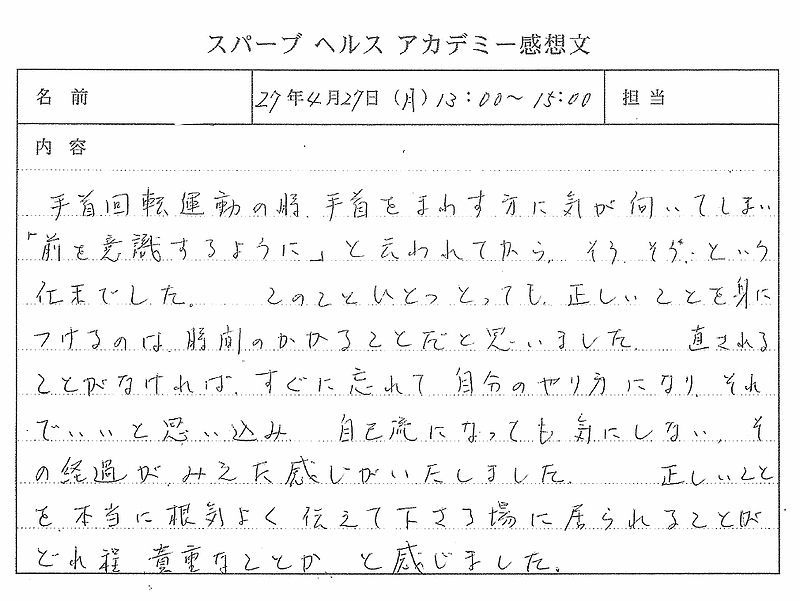 スパーブ ヘルス アカデミー感想文
名 前 27年4月27日（月）13：00～15：00 担 当
内 容
手首回転運動の時、手首をまわす方に気が向いてしまい
「前を意識するように」と言われてから、そう、そうだ、という
仕末でした。 このことひとつとっても、正しいことを身に
つけるのは、時間のかかることだと思いました。 直される
ことがなければ、すぐに忘れて 自分のやり方になり、それ
でいいと思い込み 自己流になっても気にしない、そ
の経過が、みえた感じがいたしました。 正しいこと
を本当に根気よく伝えて下さる場に居られることが
どれ程 貴重なことか、と感じました。